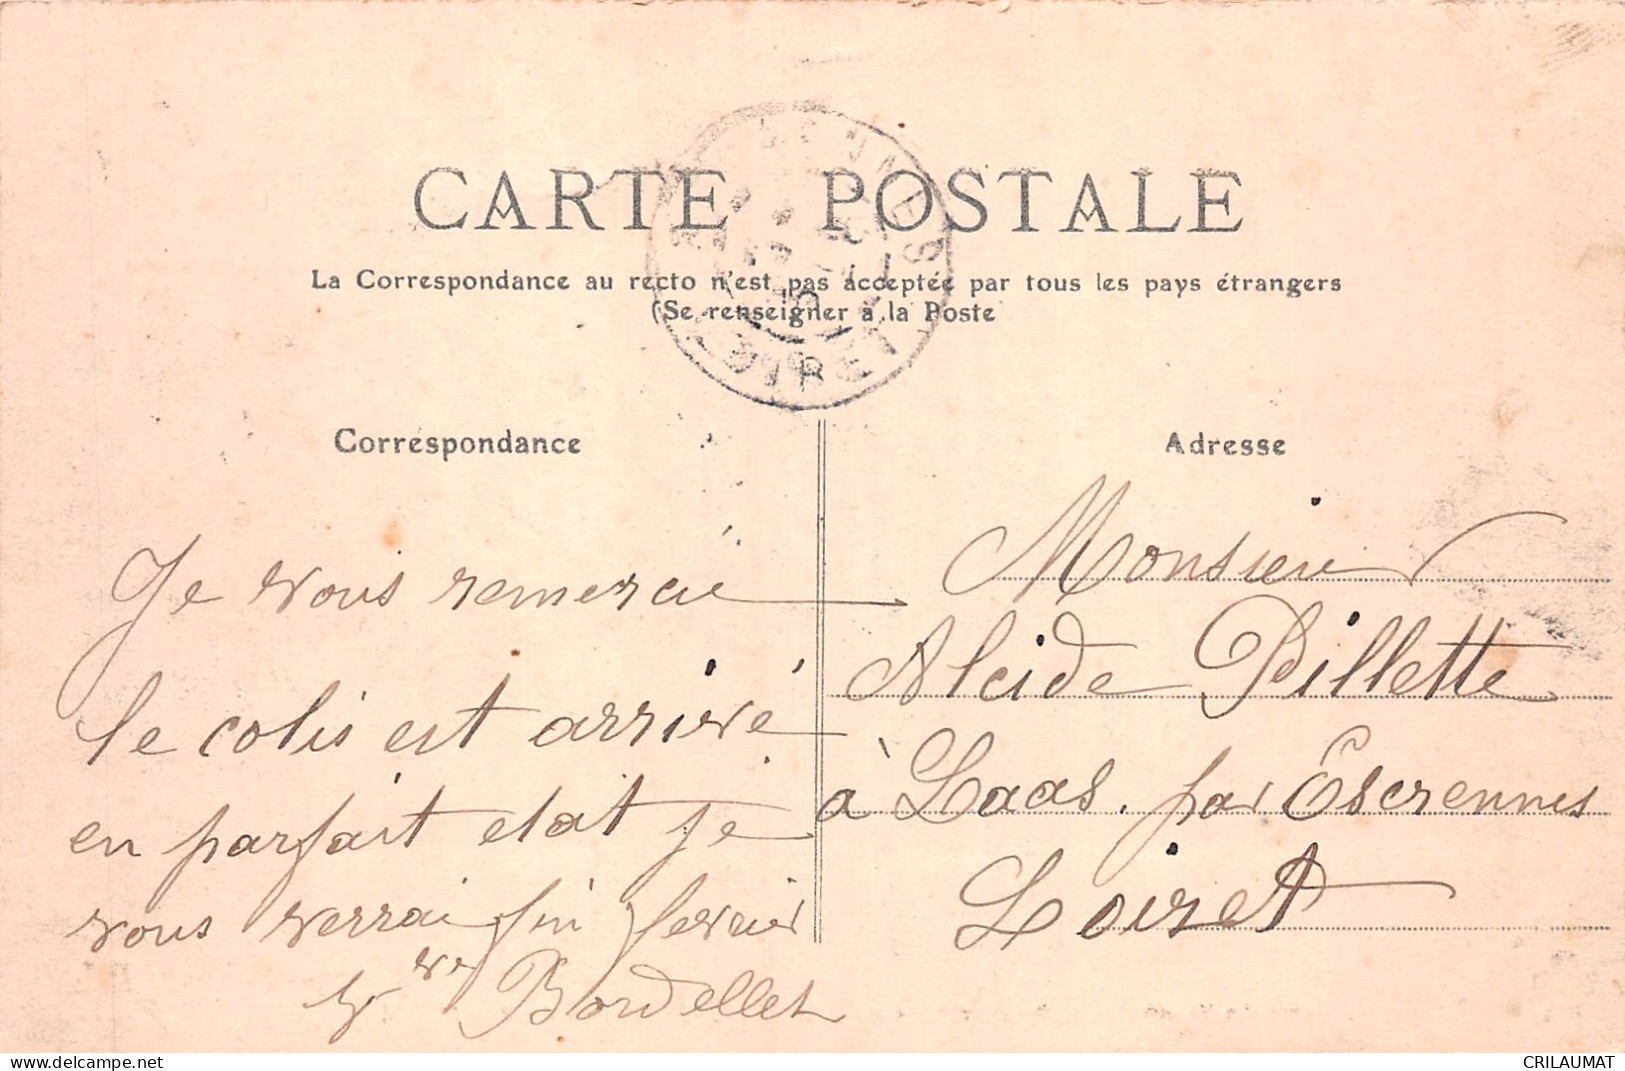 CARTE POSTALE
La Correspondance au recto n'est pas acceptée par tous les pays étrangers
(Se renseigner à la Poste
Correspondance
Je vous remercie
le colis est arrivé
en parfait etat je
vous verrai fin fevrier
Vve Bordellet
Adresse
Monsieur
Alcide Pillette
à Laas. par Escrennes
Loiret
www.delcampe.net
CRILAUMAT